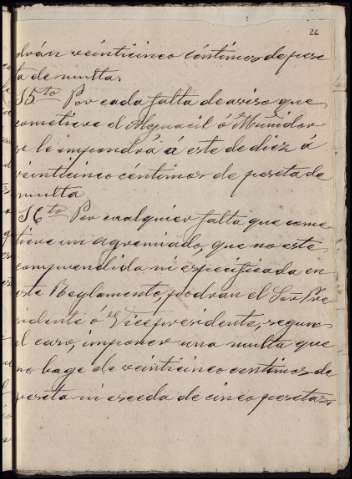 26
drán veinticinco céntimos de pese
ta de multa.
§5to Por cada falta de aviso que
cometiere el Alguacil ó Muñidor
se le impondrá a este de diez á
veinticinco centimos de peseta de
multa
§6to Por cualquier falta que come
tiere un agremiado, que no esté
comprendida ni especificada en
este Reglamento, podrán el Sor Pre
sidente ó el Vicepresidente, segun
el caso, imponer una multa que
no baje de veinticinco centimos de
peseta ni esceda de cinco pesetas